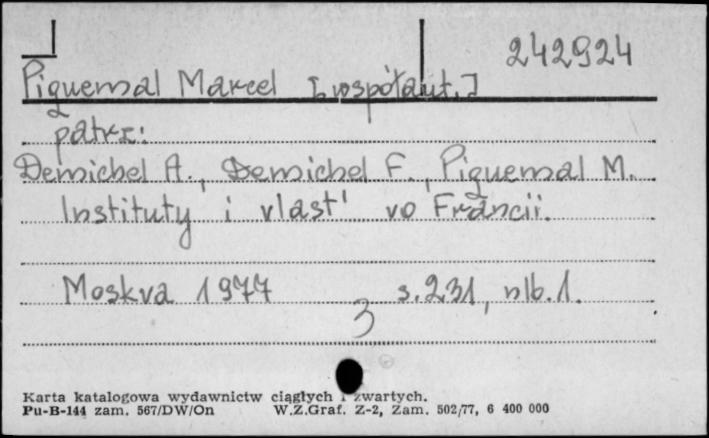 242924
Piquemal Marcel [współaut.]
patrz:
Demichel A., Demichel F., Piquemal M.
Instituty i vlast' vo Francii.
Moskva 1977 s.231, nlb.1.
3
Karta katalogowa wydawnictw ciągłych i zwartych.
Pu-B-144 zam. 567/DW/On W.Z.Graf. Z-2, Zam. 502/77, 6 400 000